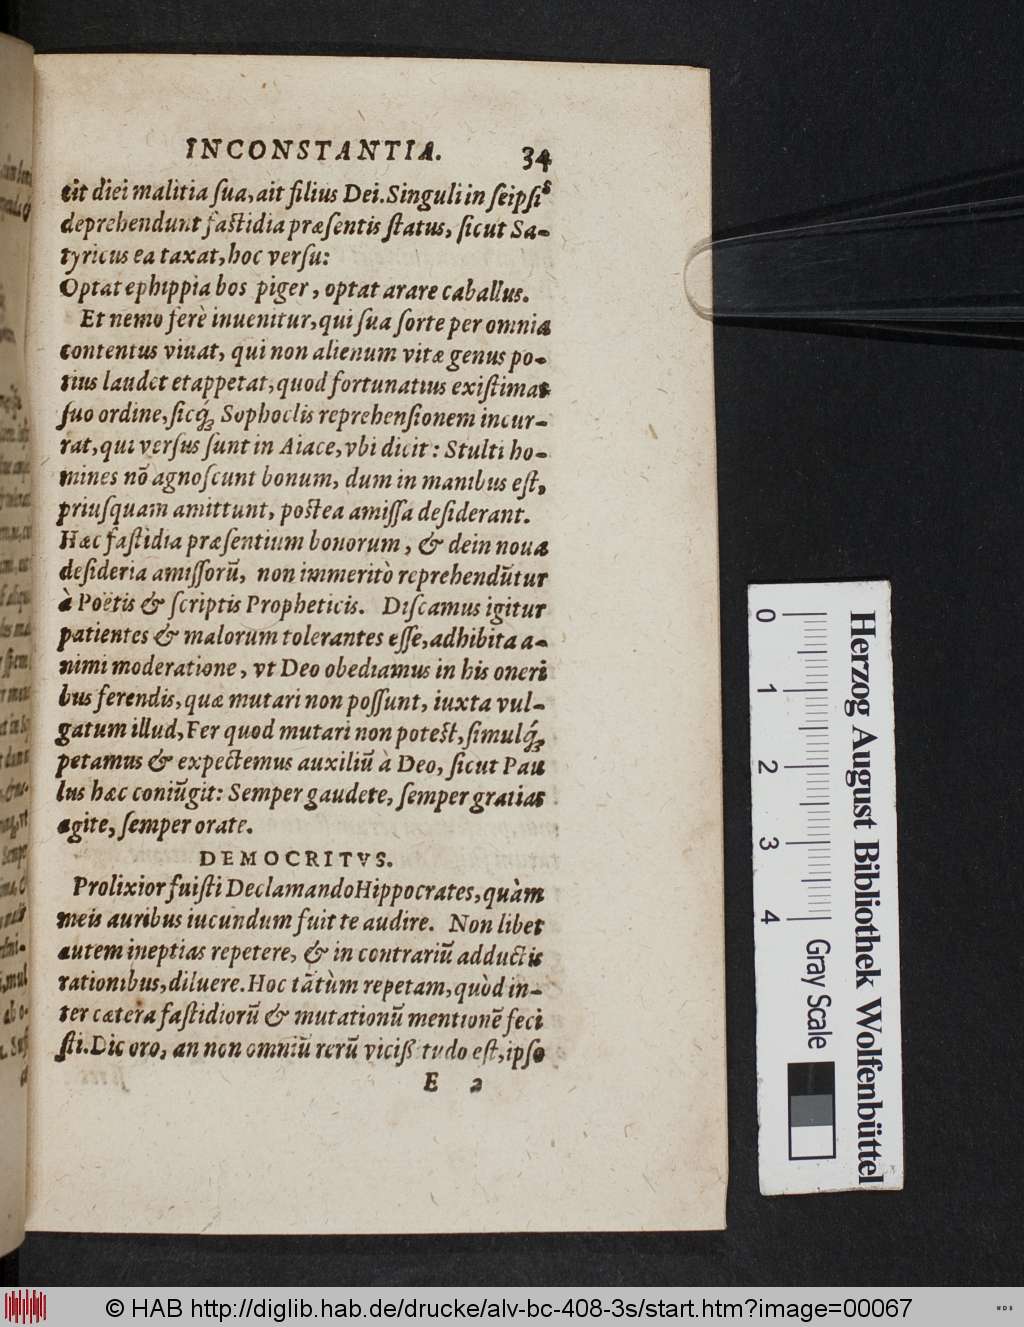 INCONSTANTIA. 34
cit diei malitia ſua, ait filius Dei. Singuli in ſeipſis
deprehendunt faſtidia præſentis ſtatus, ſicut Sa-
tyricus ea taxat, hoc verſu:
Optat ephippia bos piger, optat arare caballus.
Et nemo ferè inuenitur, qui ſua ſorte per omnia
contentus viuat, qui non alienum vitæ genus po-
tius laudet et appetat, quod fortunatius exiſtimat
ſuo ordine, ſicq́; Sophoclis reprehenſionem incur-
rat, qui verſus ſunt in Aiace, vbi dicit: Stulti ho-
mines nō agnoſcunt bonum, dum in manibus eſt,
priuſquam amittunt, poſtea amiſſa deſiderant.
Hæc faſtìdia præſentium bonorum, & dein noua
deſideria amiſſorū, non immeritò reprehendūtur
à Poëtis & ſcriptis Propheticis. Diſcamus igitur
patientes & malorum tolerantes eſſe, adhibita a-
nimi moderatione, vt Deo obediamus in his oneri
bus ferendis, quæ mutari non poſſunt, iuxta vul-
gatum illud, Fer quod mutari non poteſt, ſimulq́;
petamus & expectemus auxiliū à Deo, ſicut Pau
lus hæc coniūgit: Semper gaudete, ſemper gratias
agite, ſemper orate.
DEMOCRITVS.
Prolixior fuiſti Declamando Hippocrates, quàm
meis auribus iucundum fuit te audire. Non libet
autem ineptias repetere, & in contrariū adductis
rationibus, diluere. Hoc tātùm repetam, quòd in-
ter cætera faſtidiorū & mutationū mentionē feci
ſti. Dic oro, an non omniū rerū viciß tudo eſt, ipſo
E 2
0 1 2 3 4
Herzog August Bibliothek Wolfenbüttel
Gray Scale
© HAB http://diglib.hab.de/drucke/alv-bc-408-3s/start.htm?image=00067